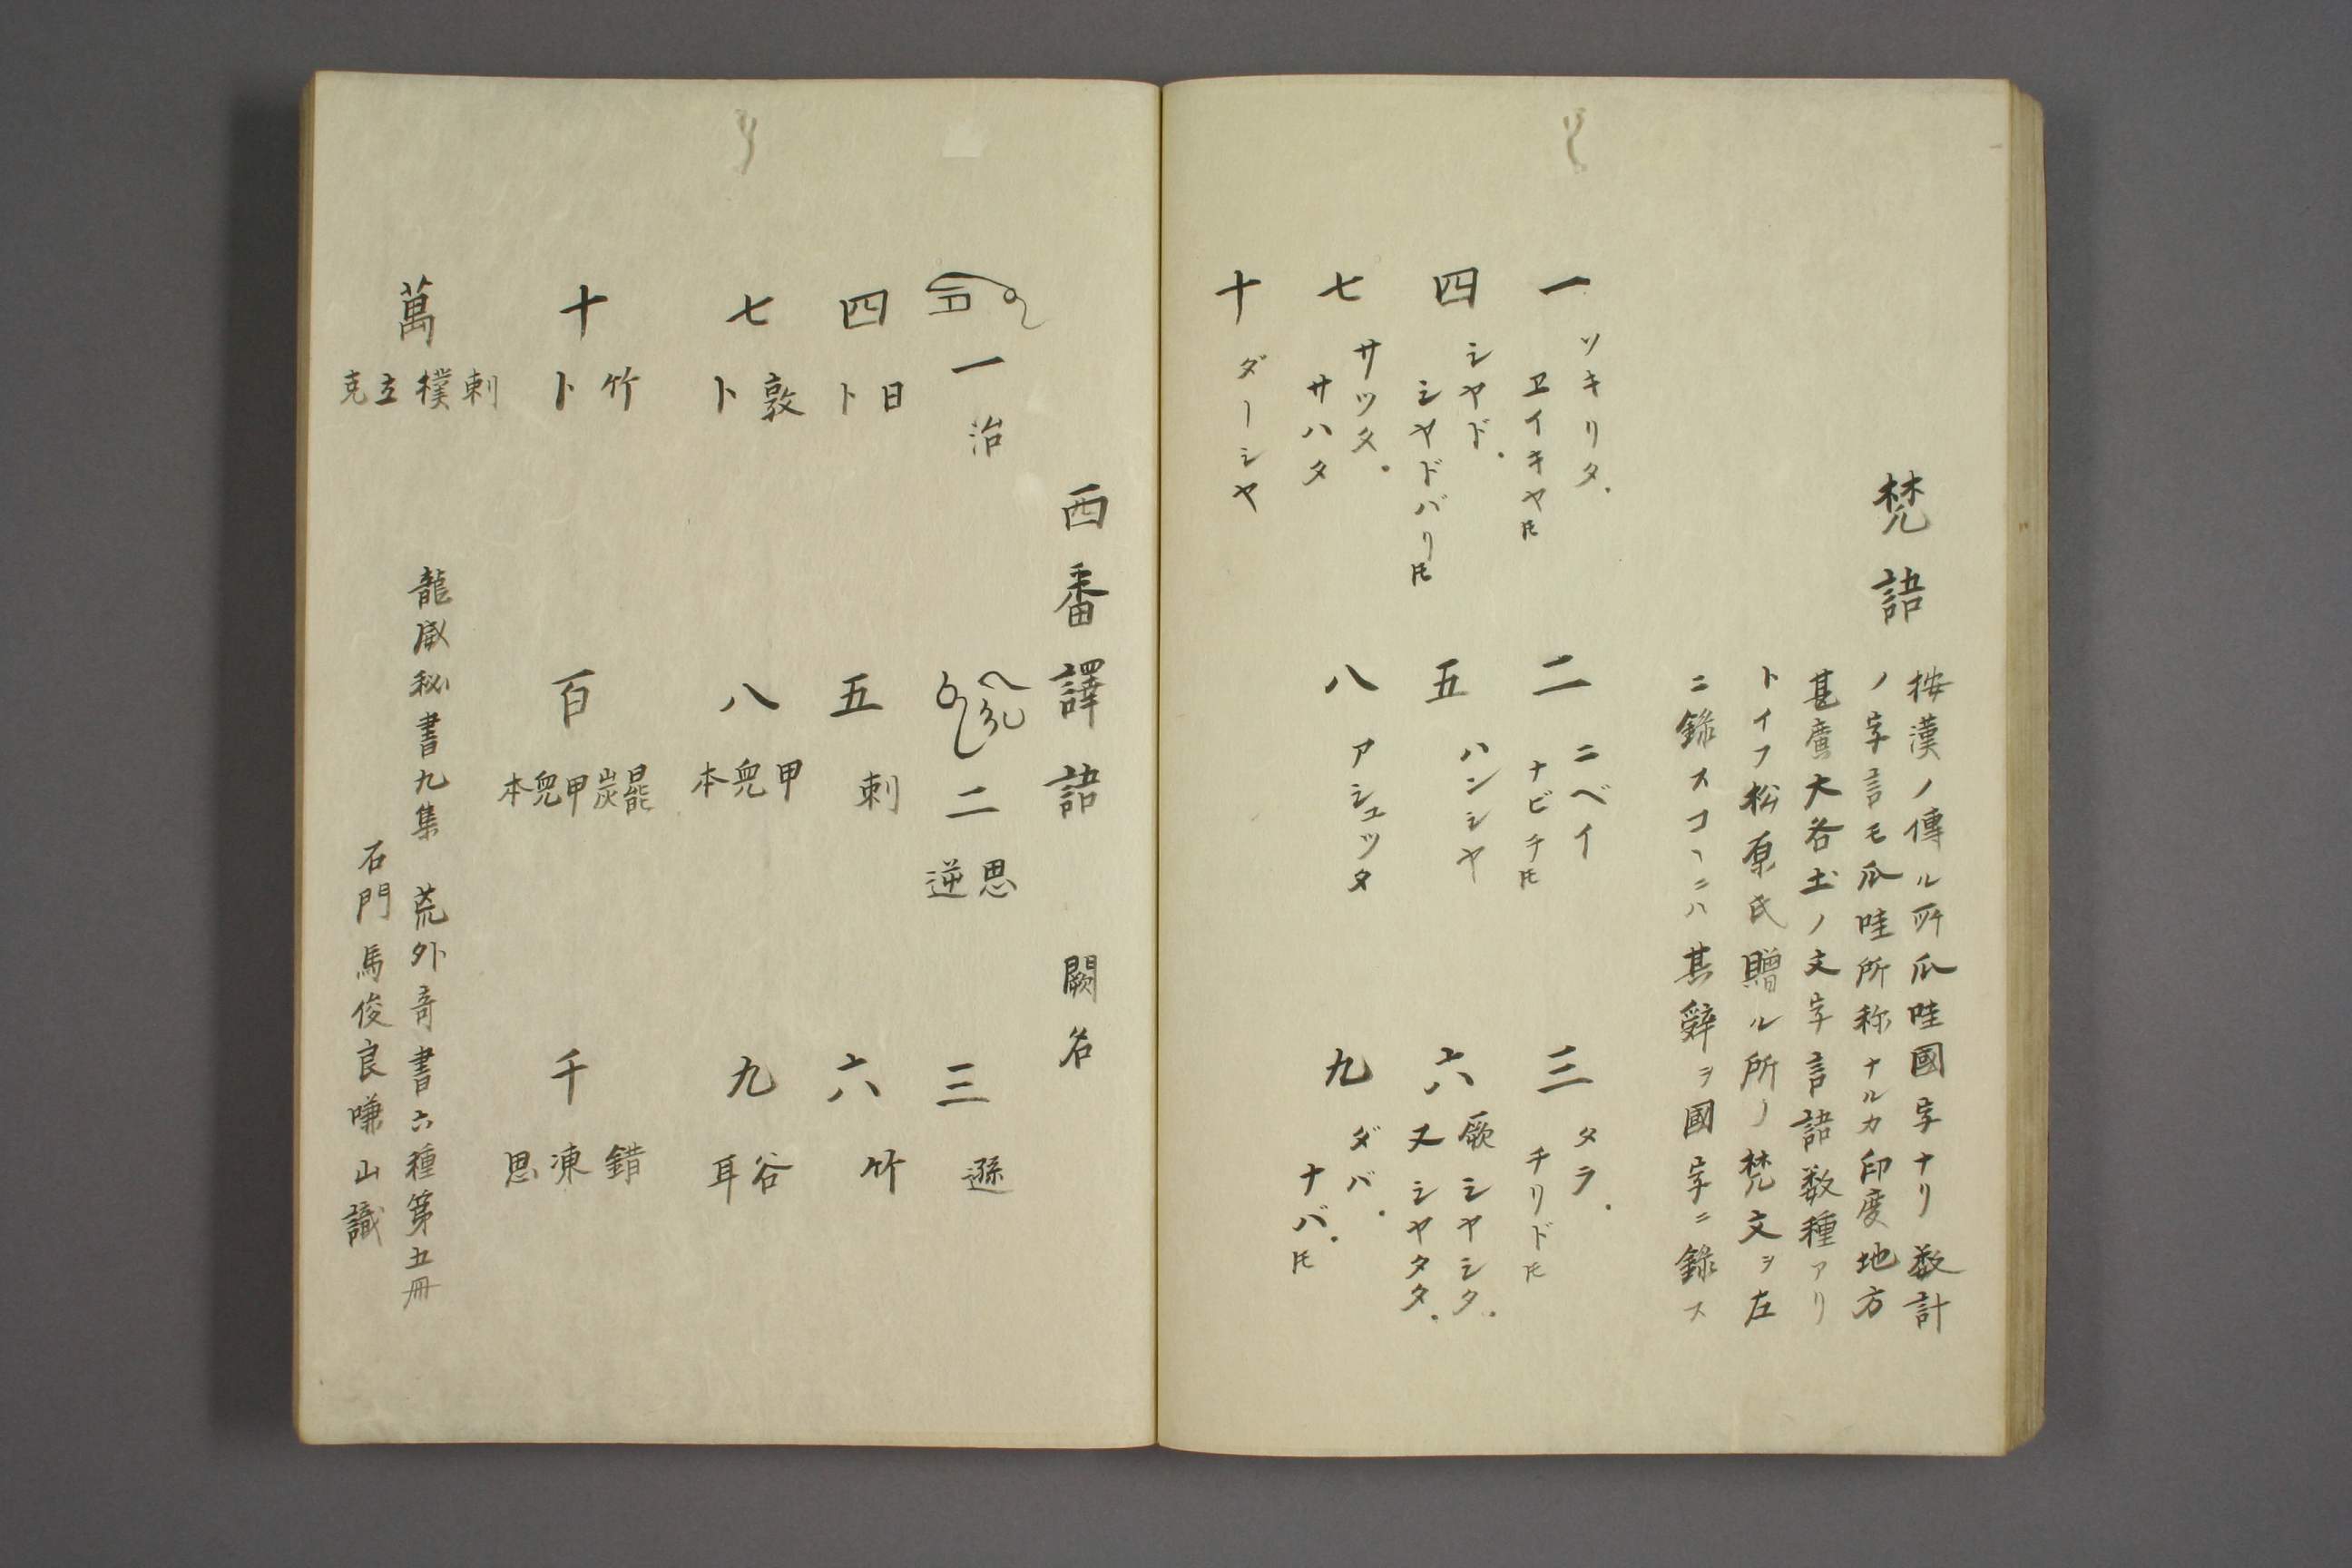 梵語
按漢ノ傳ル所爪哇國字ナリ数計
ノ字言モ爪哇所称ナルカ印度地方
甚廣大各土ノ文字言語数種アリ
トイフ松原氏贈ル所ノ梵文ヲ左
ニ録スコヽニハ其辞ヲ國字ニ録ス
一 ソキリタ.
ヱイキヤ𪜈
二 ニベイ
ナビチ𪜈
三 タラ.
チリド𪜈
四 シヤド.
シヤドバリ𪜈
五 ハンシヤ
六 歌シヤシタ.
又シヤタタ.
七 サツタ.
サハタ
八 アシユツタ
九 ダバ.
ナバ.𪜈
十 ダーシヤ
西番譯語 闕名
一 治
二 思逆
三 遜
四 日卜
五 剌
六 竹
七 敦卜
八 甲兜本
九 谷耳
十 竹卜
百 甲兜本
千 錯凍思
萬 剌樸立克
龍威秘書九集 荒外竒書六種第五冊
石門馬俊良嵰山識